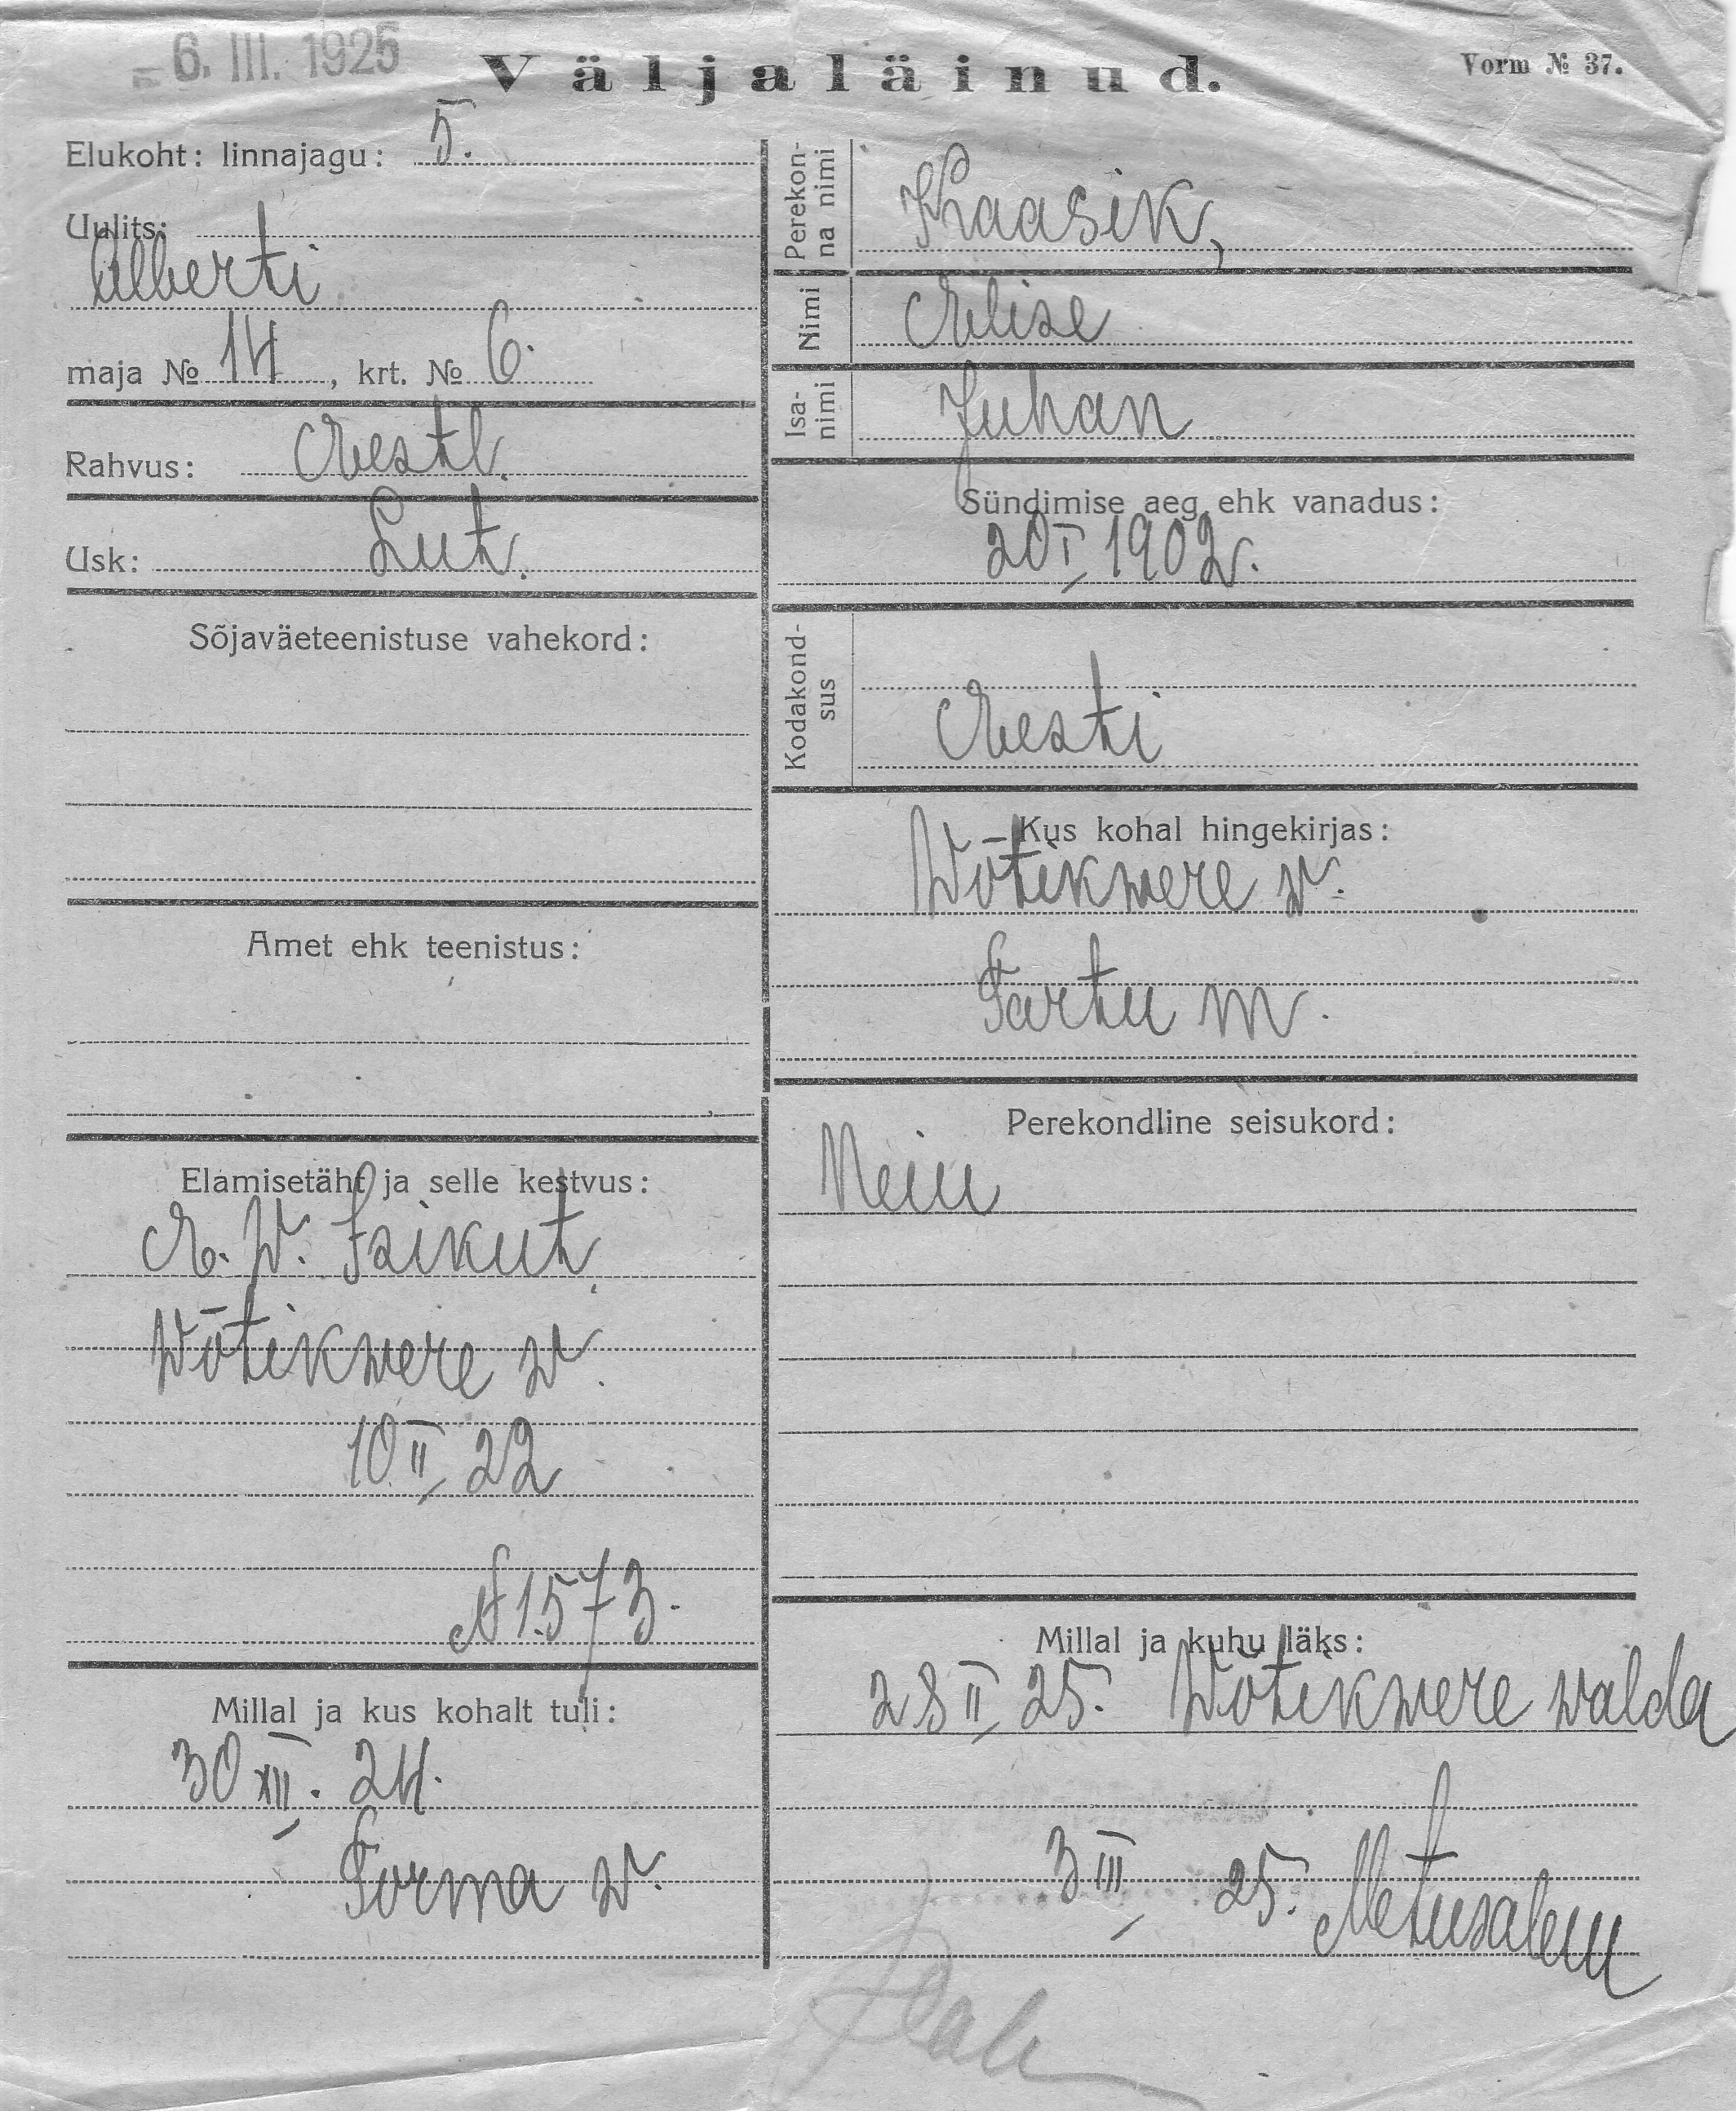 6. III. 1925
Väljaläinud.
Vorm № 37.
Elukoht: linnajagu: 5.
Uulits:
Alberti
maja № 14, krt. № 6.
Rahvus: Eestl.
Usk: Lut.
Sõjaväeteenistuse vahekord:
Amet ehk teenistus:
Elamisetäht ja selle kestvus:
E. W. Isikut.
Wōtikwere w.
10 II 22
№ 1573.
Millal ja kus kohalt tuli:
30 XII. 24.
Torma w.
Perekonna nimi
Kraasik,
Nimi
Elise
Isanimi
Juhan
Sündimise aeg ehk vanadus:
20 I 1902.
Kodakondsus
Eesti
Kus kohal hingekirjas:
Wōtikwere w.
Tartu m.
Perekondline seisukord:
Neiu
Millal ja kuhu läks:
28 II 25. Wōtikwere walda
3 III 25. Metusalem